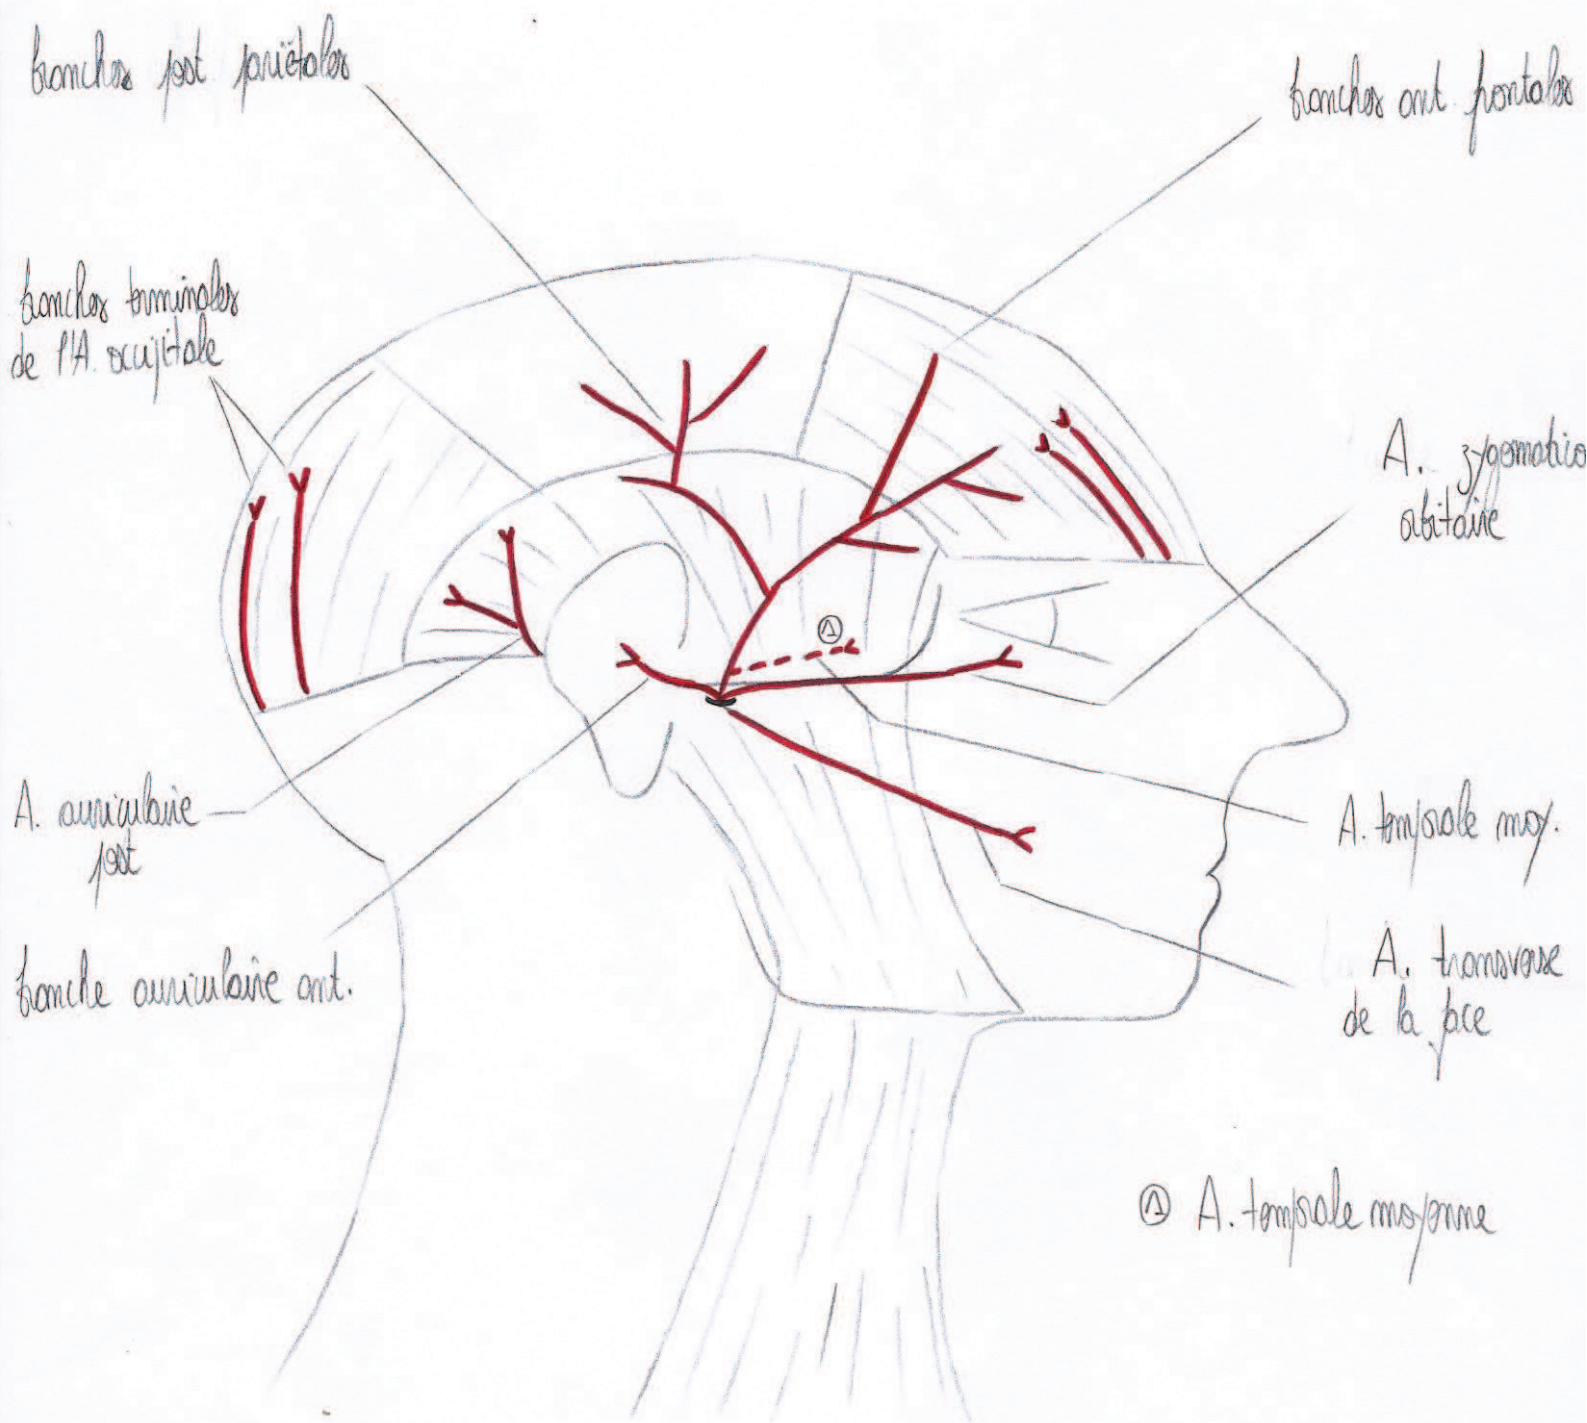 branches post pariëtales
branches ant. frontales
branches terminales
de l'A. occipitale
A. zygomatico
orbitaire
1
A. auriculaire
post
A. temporale moy.
branche auriculaire ant.
A. transverse
de la face
1 A. temporale moyenne